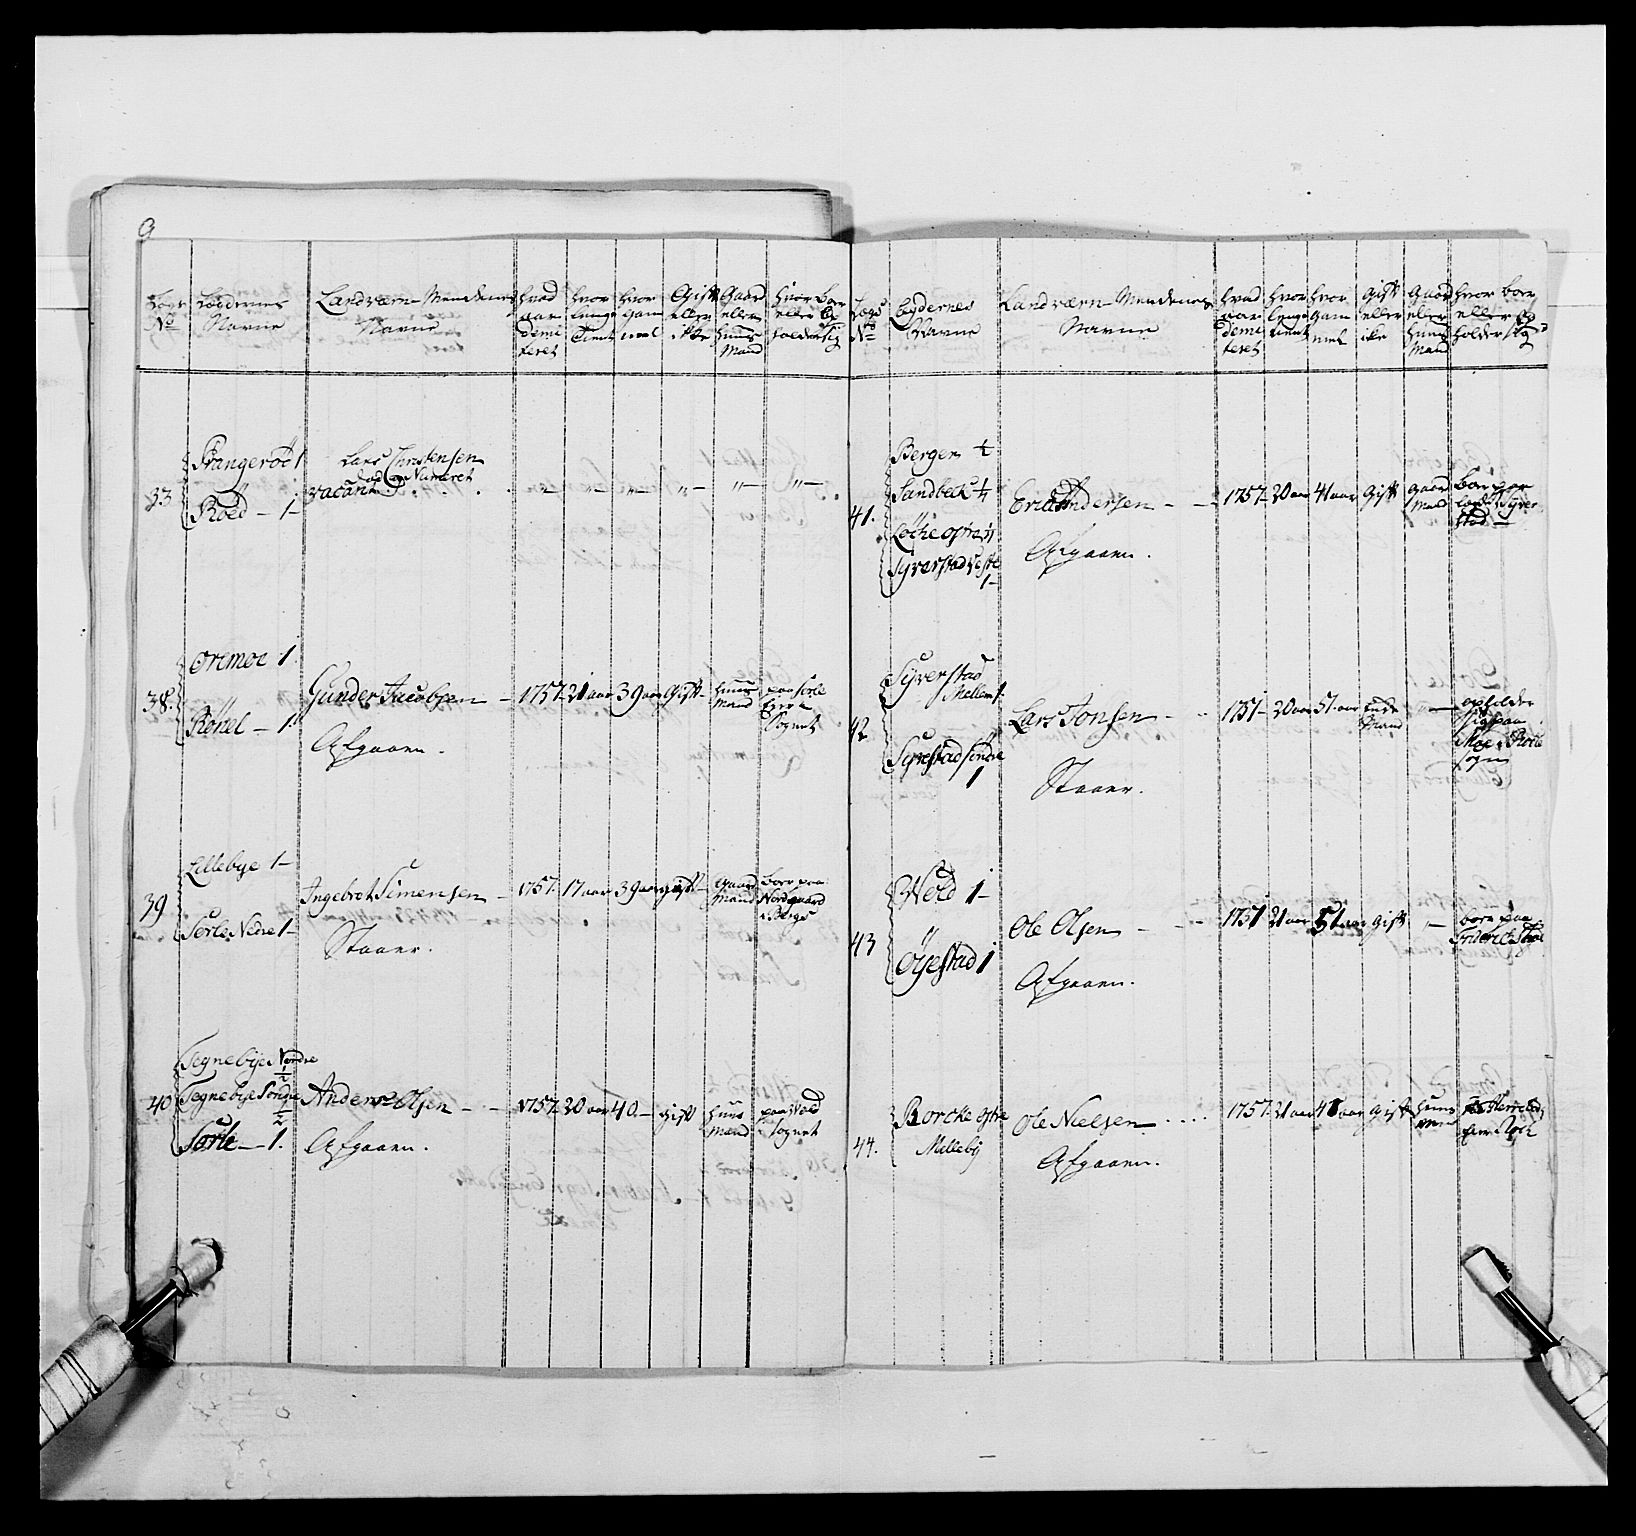 9
Legs No
Legdernes Navne
Landværn-Mendenes Navne
hvad aar demi teret
hvor lenge Tient
hvor gam mel
Gift eller ikke
Gaard eller huus Mand
hvor boer eller op holder sig
33
Prangeröe 1
Röed - 1 -
Lars Christensen
vacant
38.
Oremoe 1.
Rönel - 1.
Gunder Jacobsen -
Afgaaen.
1757- 21 aar 39 aar Gift -
huus Mand
paa Sorle
Sognet
39
Lillebye 1 -
Sørle Nedre 1 -
Ingebret Simensen -
Staaer.
1757. 17 aar 39 aar gift -
Gaard Mand
boer paa
Nordgaard
i Berge
40
Tegnebye Nordre 1/2
Tegnebye Söndre 1/2
Sørle - 1.
Anders Olsen - -
Afgaaen.
1757. 20 aar 40 - gift
huus Mand
paa Wold
i Sognet
Legs No
Legdernes Navne
Landværn-Mendenes Navne
hvad aar demi teret
hvor lenge tient
hvor gam mel
Gift eller ike
Gaard eller huus Mand
hvor boer eller op holder sig
41.
Bergen 1/4
Sandbek 1/4
Löcke östre 1/2
Syverstad Vestre 1 -
Erik Andersen - -
Afgaaen.
1757- 20 aar 41 aar Gift
Gaard Mand
Boer paa
Syver
stad -
42
Syverstad Mellem 1.
Syverstad Söndre 1
Lars Jonsen - -
Staaer.
1751- 20 aar 51. aar Enke Mand
" -
opholder
sig paa
Moe i
sogn
43
Wold 1 -
Öyestad 1
Ole Olsen - -
Afgaaen.
1751 21 aar 51 aar gift
" -
boer paa
44.
Borcke östre
Mellebÿ
Ole Nielsen . . . .
Afgaaen.
1757- 21 aar aar gift
huus Mand